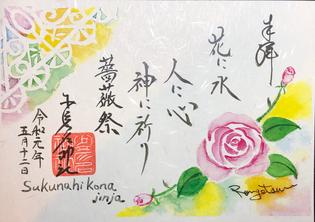 奉拝
花に水
人に心
神に祈り
薔薇祭
少彦名神社
令和元年
五月十二日
Sukunahikona
jinja